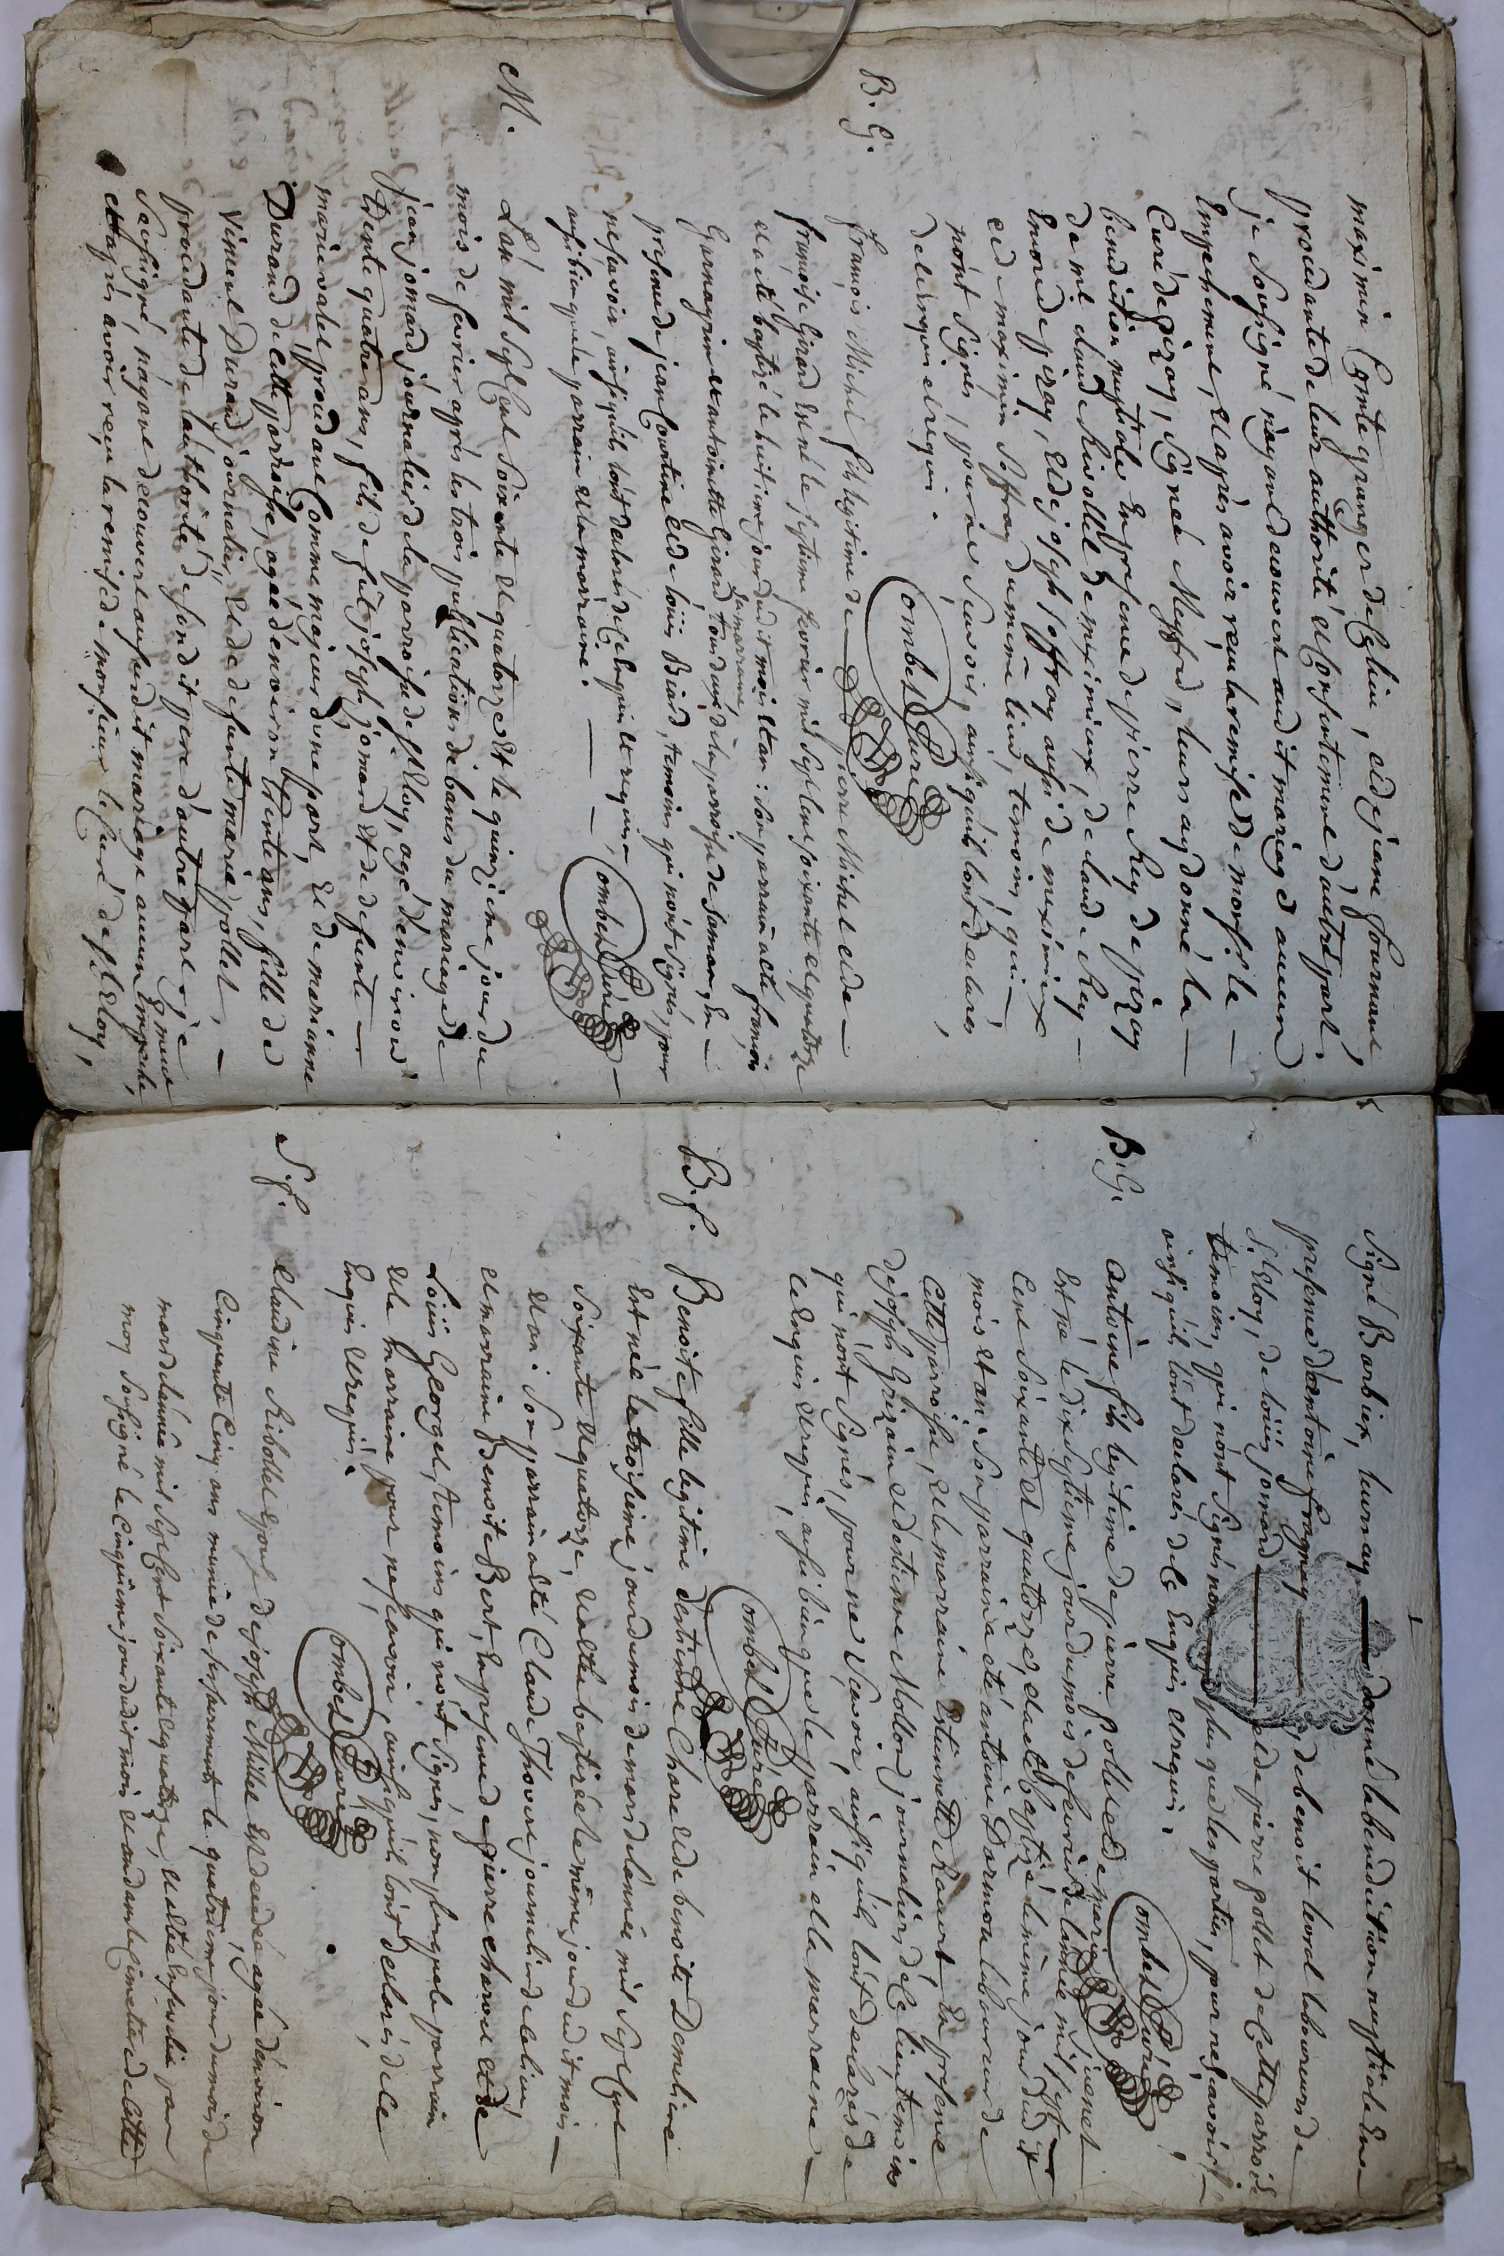 maximin Comte granger de ce lieu, et de jeane fournant,
procedante de leur authorité et consentement d'autre part,
je soussigné n'ayant decouvert audit mariage aucun
Empechement, et après avoir reçu la remise de monsr. le
Curé de pizay, signée Meyffred, leurs ay donné la
benediction nuptiale En presence de pierre Rey de pizay
de me. claude Rivollet de meximieux, de claude Rey
Emond de pizay, et de joseph soffray aussi de meximieux
et de maximin soffray du même lieu, temoins, qui
n'ont signés, pour ne scavoir, ainsi qu'ils l'ont declarés
de ce enquis et requis.
Combet Curé
B. G.
françois Michel fils legitime de pierre Michel et de
françoise Girard est né le septieme fevrier mil sept cent soixante et quatorze
et a été baptizé le huitieme jour dudit mois et an: son parrain a été françois
Garnagrin et antoinette Girard sa marraine, tous deux de la parroisse de saman, En
presence de jean Courtine et de loüis Biard, temoins qui n'ont signés, pour
ne sçavoir, ainsi qu'ils l'ont declaré de ce Enquis et requis,
aussi bien que le parrain et la marraine.
Combet Curé
M.
L'an mil sept cent soixante et quatorze et le quinzieme jour du
mois de fevrier après les trois publications de bancs du mariage de
jean jomard journalier de la parroisse de st. Eloy, agé d'environ
trente quatre ans, fils de feu joseph jomard et de defunte
marie valet, procedant Comme majeur d'une part, Et de marianne
Durand de cette parroisse, agée d'environ trente ans, fille de
vincent Durand journalier, et de defunte marie pollet,
procedante de l'authorité de son dit pere d'autre part, je
soussigné, n'ayant decouvert ausudit mariage aucun Empeche,
ment
et après avoir reçu la remise de monsieur le Curé de st. Eloy,
signé Barbier, leurs ay donné la benediction nuptiale En
presence d'antoine fragnay de benoit leoral laboureurs de
st. Eloy, de loüis jomard et de pierre pollet de cette parroisse
temoins, qui n'ont signés non plus que les parties, pour ne sçavoir,
ainsi qu'ils l'ont declarés de ce Enquis et requis.
Combet Curé
B. G.
antoine fils legitime de pierre pollet et de marie juenet
Est né le dixseptieme jour du mois de fevrier de l'année mil sept
cent soixante et quatorze, et a été baptizé le même jour dudit
mois et an. son parrain a été antoine Dormon laboureur de
cette parroisse, et la marraine Estiennette Ravert, En presence
de joseph Grizain et d'estienne Mollon journaliers de ce lieu temoins
qui n'ont signés, pour ne scavoir, ainsi qu'ils l'ont declarés de
ce Enquis et requis aussi bien que le parrain et la marraine
Combet Curé
B. f.
Benoite fille legitime d'entienne Chare et de benoite Demeliere
Est née le troisieme jour du mois de mars de l'année mil sept cent
soixante et quatorze, et a été baptizée le même jour dudit mois
et an. Son parrain a été Claude Thovert journalier de ce lieu,
et marraine Benoite Bert, En presence de pierre charvet et de
Loüis George, temoins qui n'ont signés, non plus que le parrain
et la marraine pour ne sçavoir, ainsi qu'ils l'ont declarés de ce
Enquis et requis.
Combet Curé
S. f.
Claudine Ribollet Epouse de joseph Millet Est decedée agée d'environ
Cinquante Cinq ans munie de ses sacrements le quatrieme jour du mois de
mars de l'année mil sept cent soixante et quatorze, et a été ensevelie par
moy soussigné le Cinquieme jour dudit mois et an dans le Cimetiere de cette